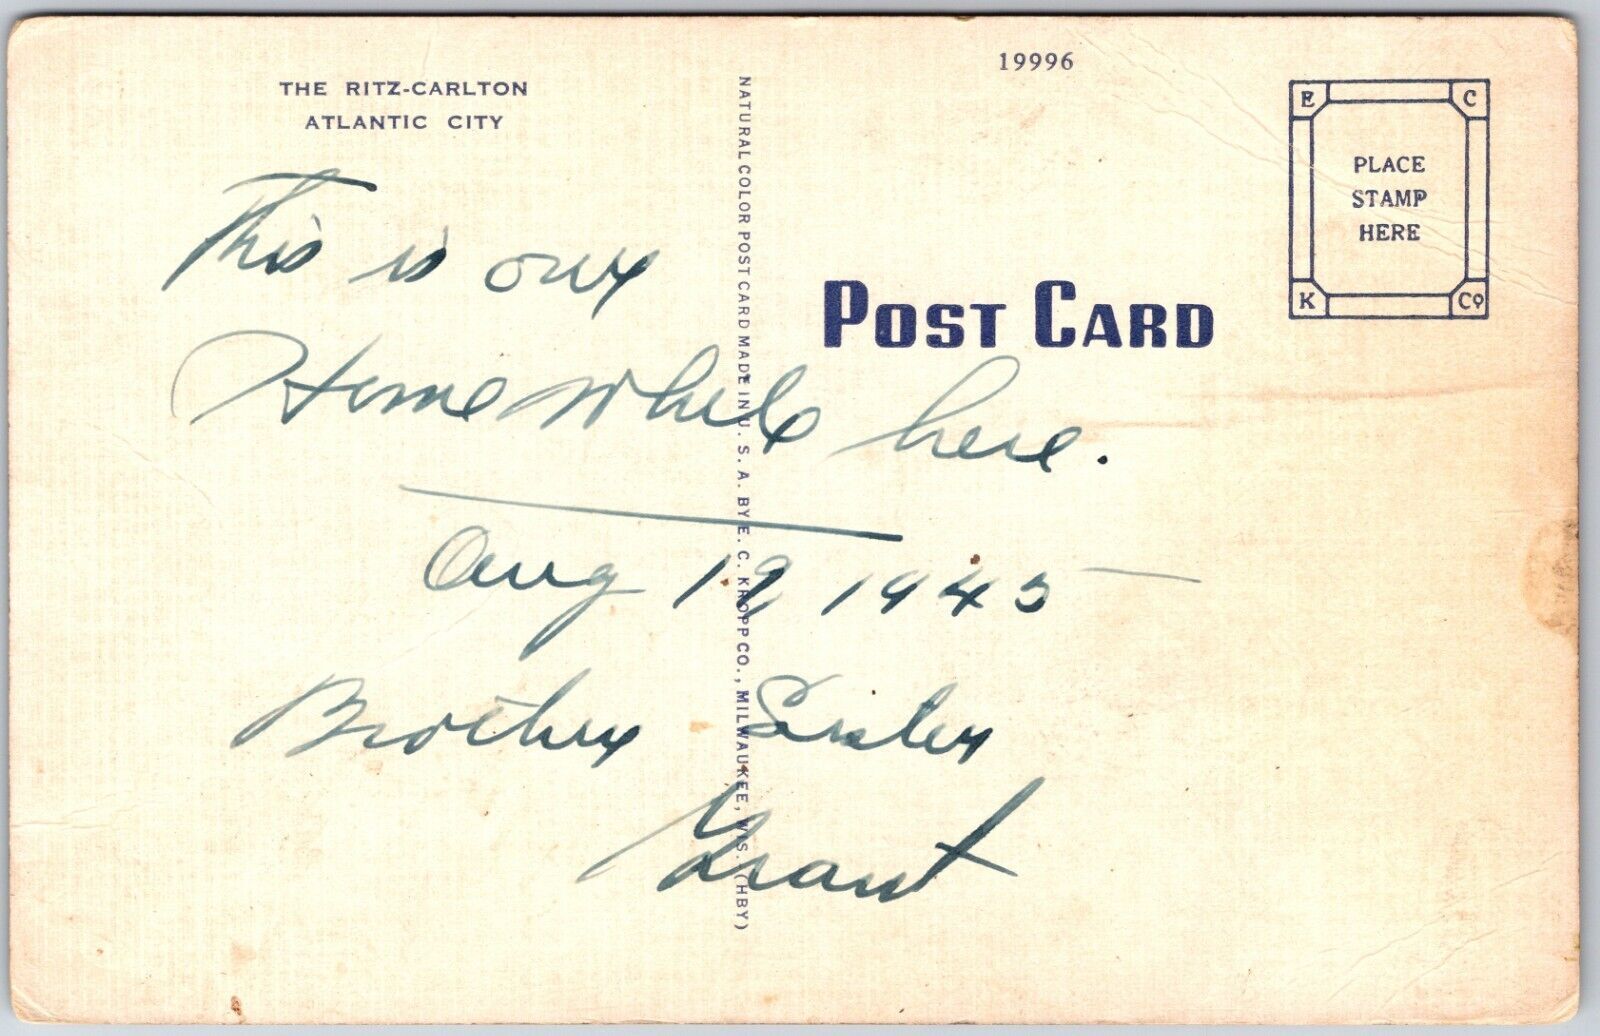 THE RITZ-CARLTON
ATLANTIC CITY
19996
E C
PLACE
STAMP
HERE
K Co
POST CARD
NATURAL COLOR POST CARD MADE IN U. S. A. BY E. C. KROPP CO., MILWAUKEE, WIS. (HBY)
This is our
Home While here.
Aug 19 1945
Brother
Grant